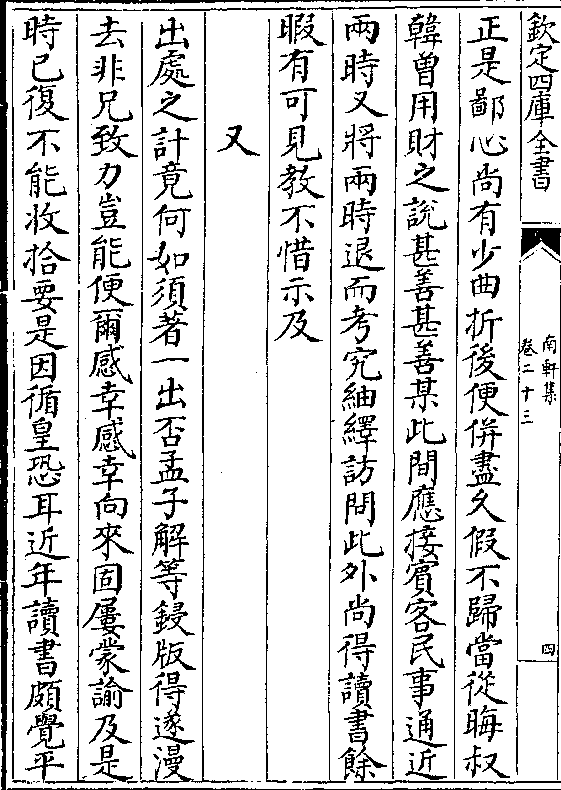 欽定四庫全書
南軒集
卷二十三
四
正是鄙心尚有少曲折後便併盡久假不歸當從晦叔
韓曾用財之說甚善甚善某此間應接賓客民事通近
兩時又將兩時退而考究紬繹訪問此外尚得讀書餘
暇有可見教不惜示及
又
出處之計竟何如須著一出否孟子解等鋟版得遂漫
去非兄致力豈能便爾感幸感幸向來固屢蒙諭及是
時已復不能收拾要是因循皇恐耳近年讀書頗覺平